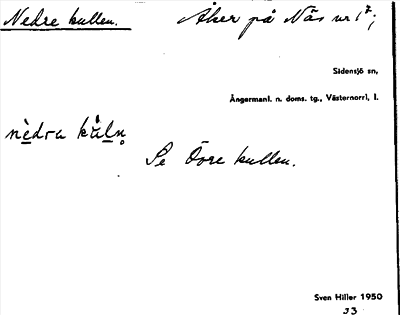 Nedre kullen. Åker på Näs nr 1⁷;
Sidensjö sn,
Ångermanl. n. doms. tg., Västernorrl, l.
nèdra kåln̥
Se Övre kullen.
Sven Hiller 1950
33